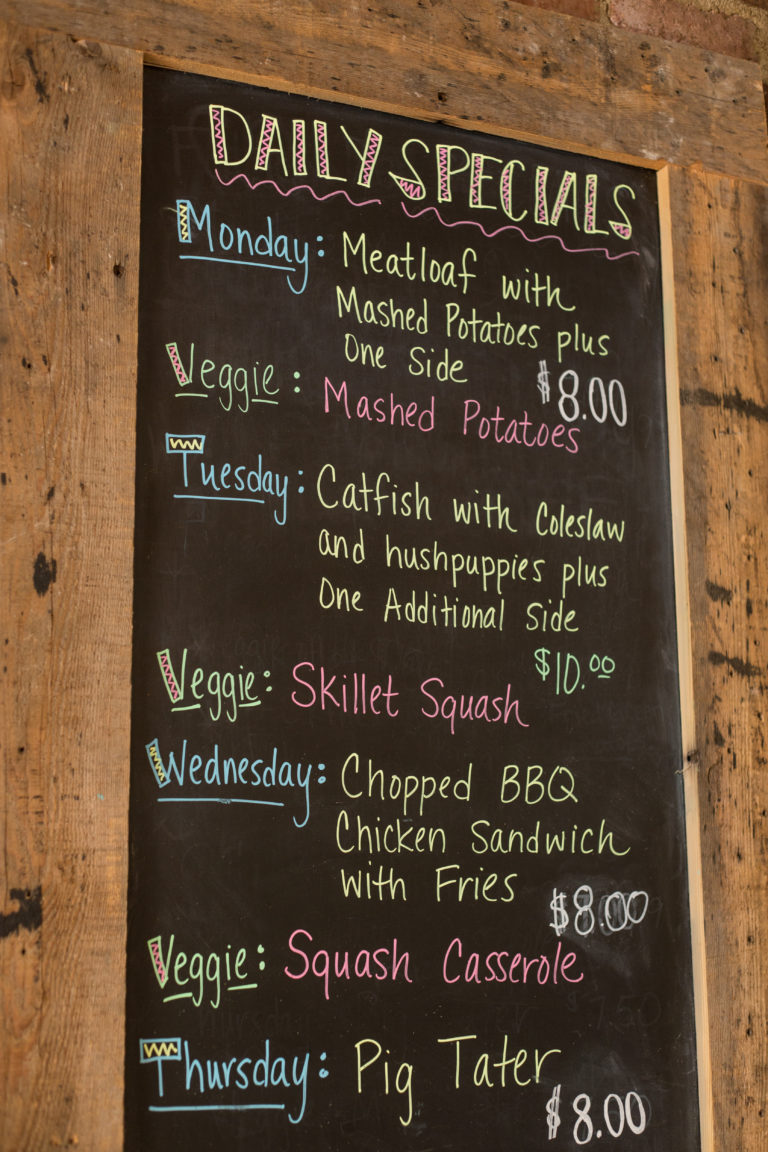 DAILY SPECIALS
Monday: Meatloaf with
Mashed Potatoes plus
One Side
$8.00
Veggie: Mashed Potatoes
Tuesday: Catfish with Coleslaw
and hushpuppies plus
One Additional Side
$10.00
Veggie: Skillet Squash
Wednesday: Chopped BBQ
Chicken Sandwich
with Fries
$8.00
Veggie: Squash Casserole
Thursday: Pig Tater
$8.00